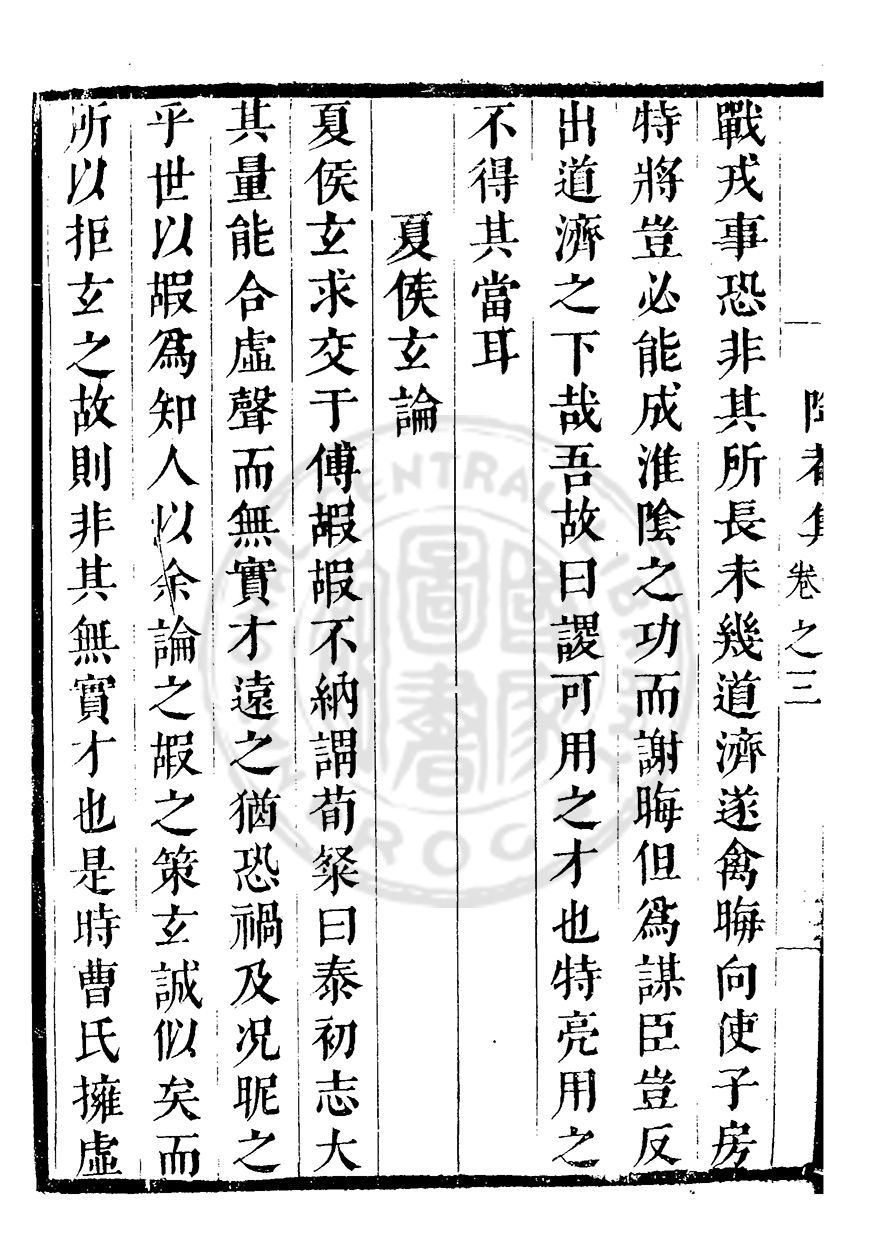 集卷之三
戰戎事恐非其所長未幾道濟遂禽晦向使子房
特將豈必能成淮陰之功而謝晦但爲謀臣豈反
出道濟之下哉吾故曰謖可用之才也特亮用之
不得其當耳
夏侯玄論
夏侯玄求交于傅嘏嘏不納謂荀粲曰泰初志大
其量能合虛聲而無實才遠之猶恐禍及况昵之
乎世以嘏爲知人以余論之嘏之策玄誠似矣而
所以拒玄之故則非其無實才也是時曹氏擁虛
CENTRAL
ROC
圖
書